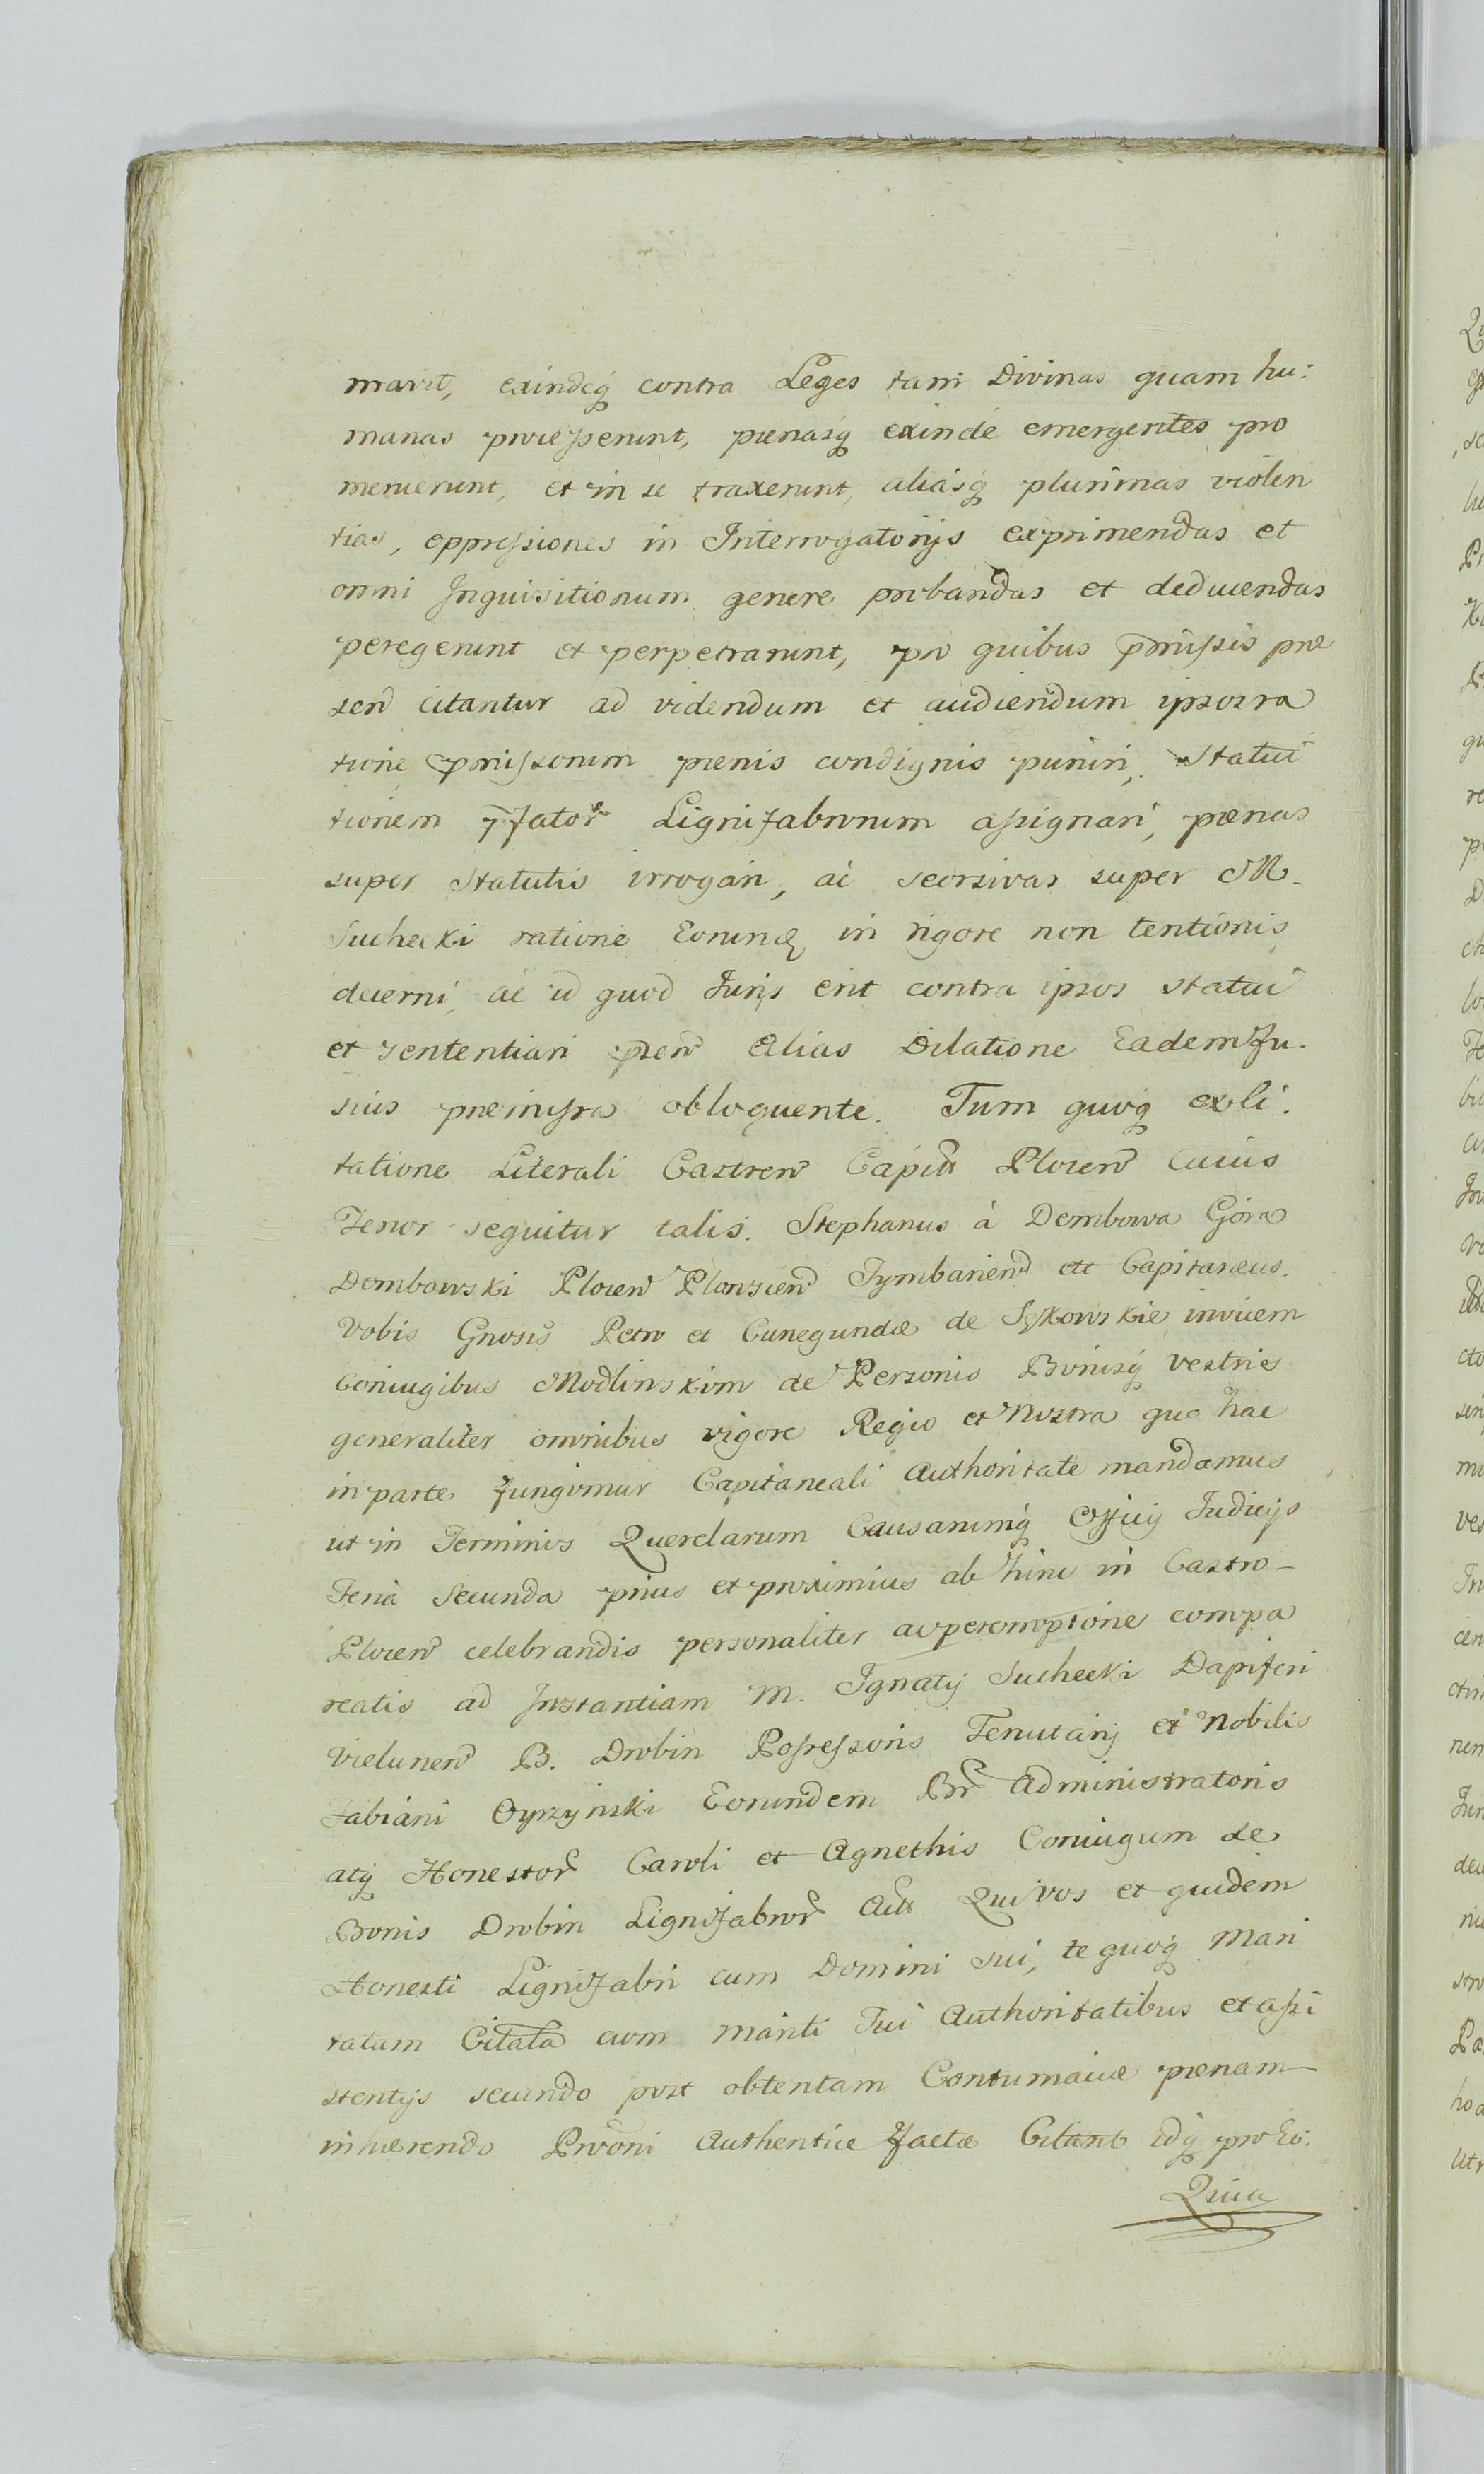 mavit, exindeq contra Leges tam Divinas quam hu:
manas processerunt, pœnasq exinde emergentes pro
meruerunt, et in se traxerunt, aliasq plurimas violen
tias, oppressiones in Interrogatorijs exprimendas et
omni Inquisitionum genere probandas et deducendas
peregerunt et perpetrarunt, pro quibus pmissis præ
sen citantur ad videndum et audiendum ipsos ra
tione pmissorum pœnis condignis puniri, Statui
tionem pfator Lignifabrorum assignari, pœnas
super Statutis irrogari, ac seorsivas super M.
Suchecki ratione Eorund in rigore non tentionis
decerni, ac id quod Juris erit contra ipsos statui
et sententiari psen Alias Dilatione Eadem fu.
sius præmissa obloquente. Tum quoq ex Ci.
tatione Literali Castren Capitt Plocen Cuius
Tenor sequitur talis. Stephanus à Dembowa Góra
Dembowski Plocen Plonscen Tymbarien etc Capitaneus.
Vobis Gnosis Petro et Cunegundæ de Sykowskie invicem
Coniugibus Modlinskim de Personis Bonisq vestris
generaliter omnibus vigore Regio et Nostra qua hac
in parte fungimur Capitaneali Authoritate mandamus
ut in Terminis Querelarum Causarumq Officij Judicijs
Feria Secunda prius et proximius ab hinc in Castro-
Plocen celebrandis personaliter ac peremptorie compa
reatis ad Instantiam M. Ignatij Suchecki Dapiferi
Vielunen B. Drobin Possessoris Tenutarij et Nobilis
Fabiani Oyrzyński Eorundem Br Administratoris
atq Honestor Caroli et Agnethis Coniugum de
Bonis Drobin Lignifabror Act Qui vos et quidem
Honesti Lignifabri cum Domini sui, te quoq Mari
tatam Citata cum mariti Tui Authoritatibus et assi
stentijs secundo post obtentam Contumaciæ pœnam
inhærendo Prooni Authentice factæ Citant Idq pro Eo.